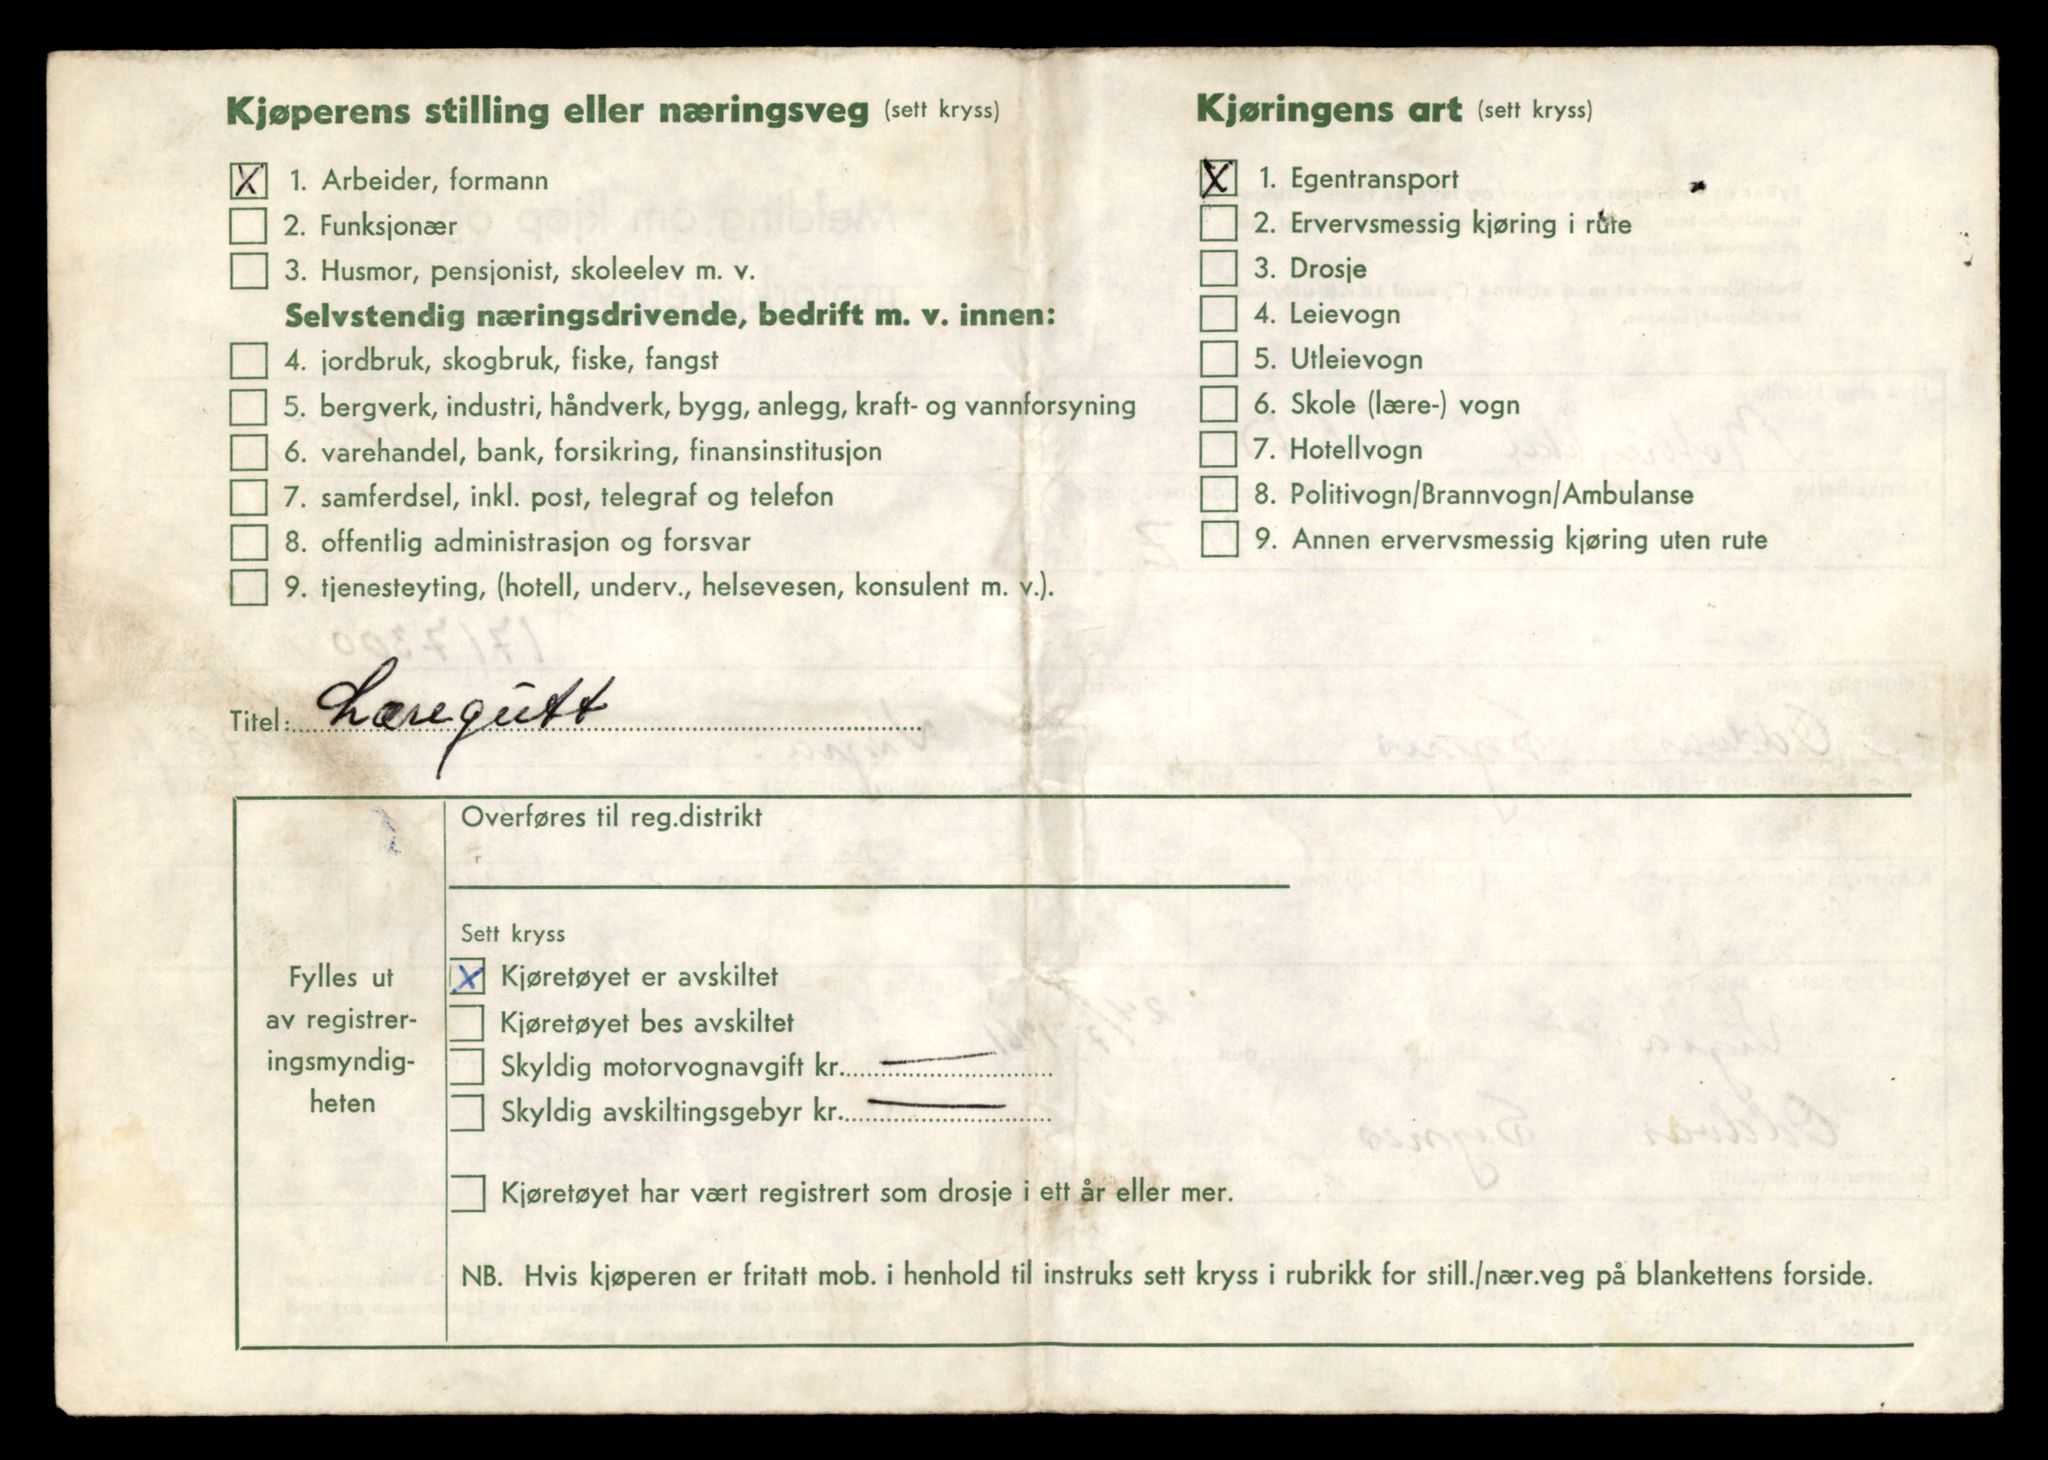 Kjøperens stilling eller næringsveg (sett kryss)
X 1. Arbeider, formann
2. Funksjonær
3. Husmor, pensjonist, skoleelev m. v.
Selvstendig næringsdrivende, bedrift m. v. innen:
4. jordbruk, skogbruk, fiske, fangst
5. bergverk, industri, håndverk, bygg, anlegg, kraft- og vannforsyning
6. varehandel, bank, forsikring, finansinstitusjon
7. samferdsel, inkl. post, telegraf og telefon
8. offentlig administrasjon og forsvar
9. tjenesteyting, (hotell, underv., helsevesen, konsulent m. v.).
Kjøringens art (sett kryss)
X 1. Egentransport
2. Ervervsmessig kjøring i rute
3. Drosje
4. Leievogn
5. Utleievogn
6. Skole (lære-) vogn
7. Hotellvogn
8. Politivogn/Brannvogn/Ambulanse
9. Annen ervervsmessig kjøring uten rute
Titel: Læregutt
Fylles ut
av registrer-
ingsmyndig-
heten
Overføres til reg.distrikt
Sett kryss
X Kjøretøyet er avskiltet
Kjøretøyet bes avskiltet
Skyldig motorvognavgift kr. —
Skyldig avskiltingsgebyr kr. —
Kjøretøyet har vært registrert som drosje i ett år eller mer.
NB. Hvis kjøperen er fritatt mob. i henhold til instruks sett kryss i rubrikk for still./nær.veg på blankettens forside.